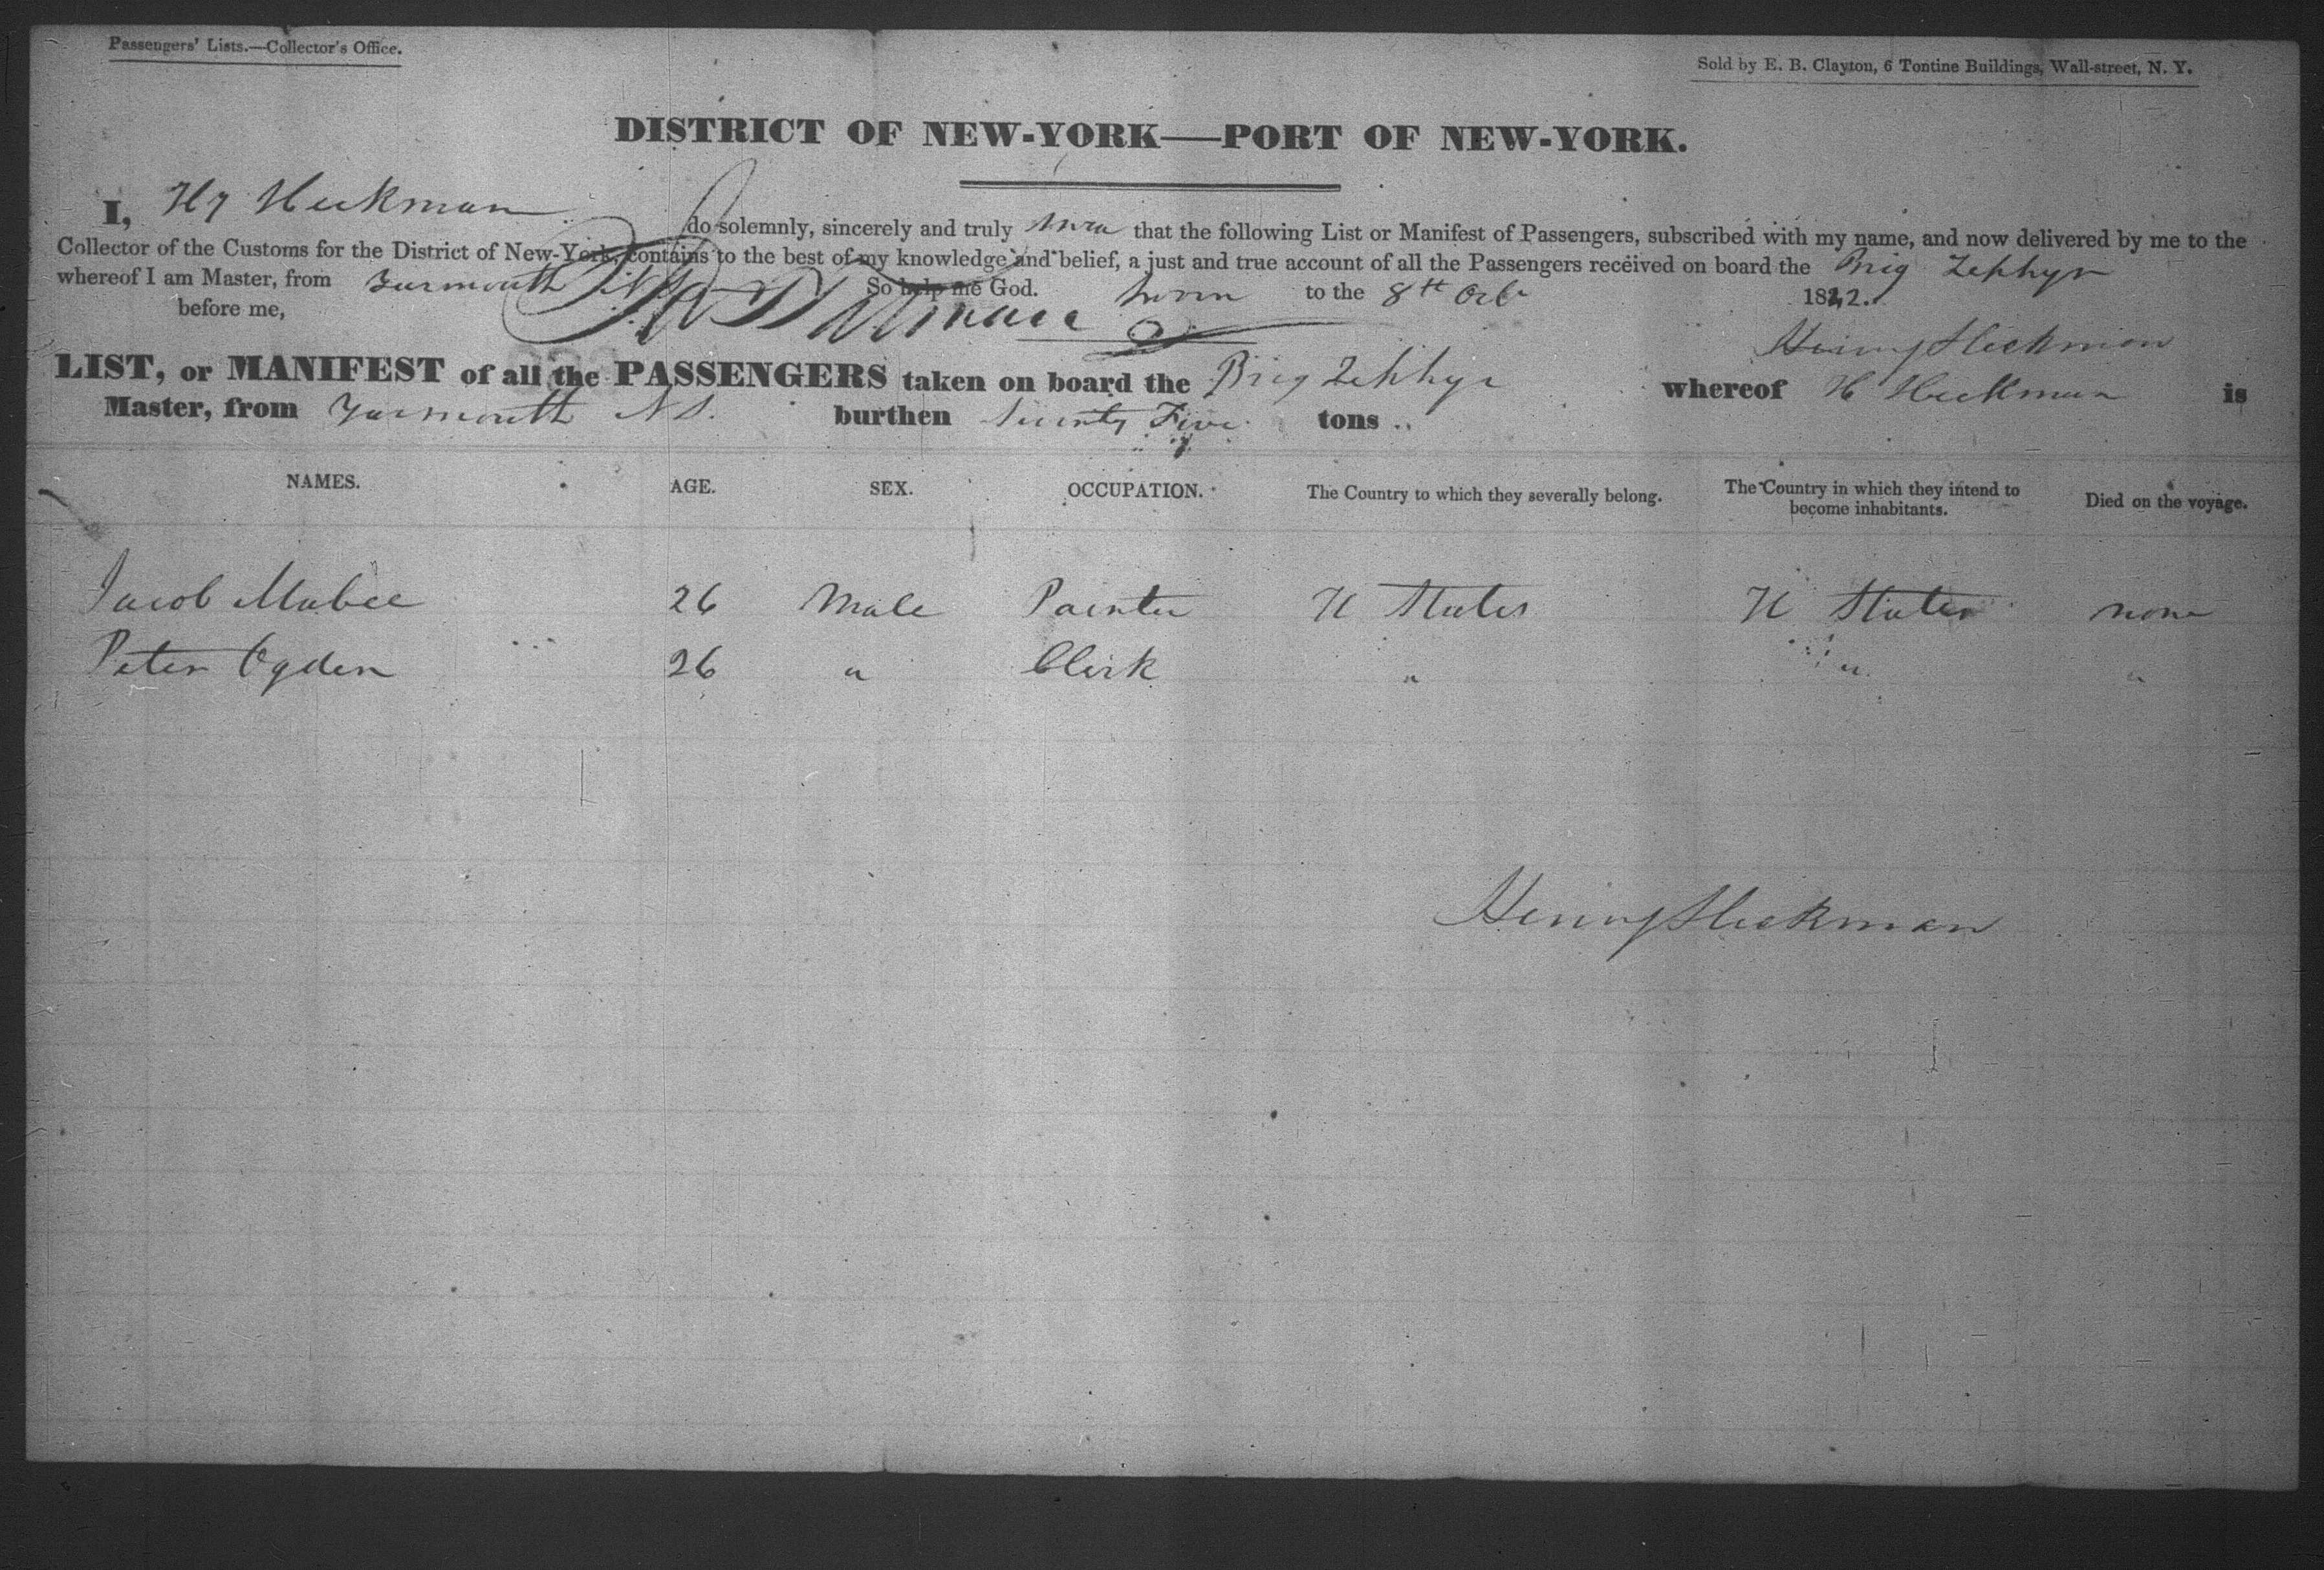 Passengers' Lists.—Collector's Office.
Sold by E. B. Clayton, 6 Tontine Buildings, Wall-street, N. Y.
DISTRICT OF NEW-YORK—PORT OF NEW-YORK.
I, Hy Heckman do solemnly, sincerely and truly that the following List or Manifest of Passengers, subscribed with my name, and now delivered by me to the
Collector of the Customs for the District of New-York, contains to the best of my knowledge and belief, a just and true account of all the Passengers received on board the Brig Zephyr
whereof I am Master, from Yarmouth So help me God. to the 8th Octr 18
before me,
Henry Heckman
LIST, or MANIFEST of all the PASSENGERS taken on board the Brig Zephyr whereof H Heckman is
Master, from Yarmouth N S. burthen Five tons
NAMES. AGE. SEX. OCCUPATION. The Country to which they severally belong. The Country in which they intend to become inhabitants. Died on the voyage.
Jacob Mabee 26 Male Painter U States U States none
Peter Ogden 26 " Clerk " " "
Henry Heckman